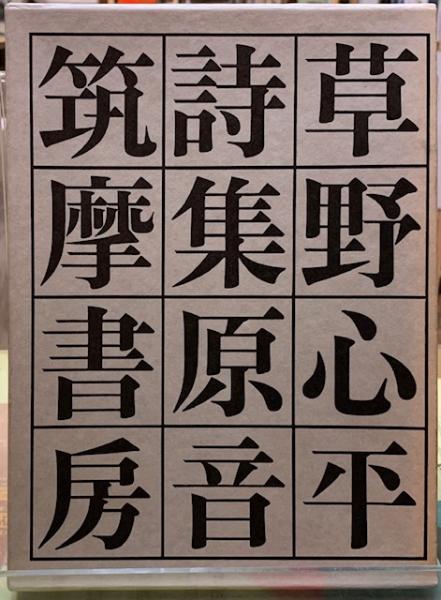 草野心平
詩集原音
筑摩書房